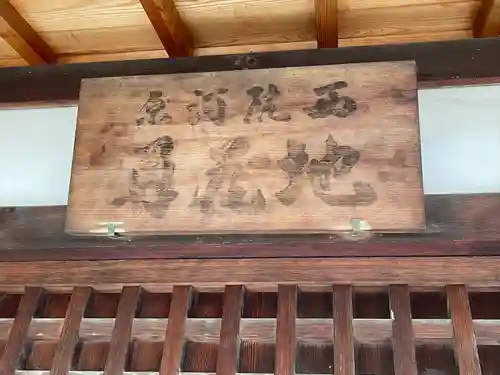 西院河原
地蔵尊